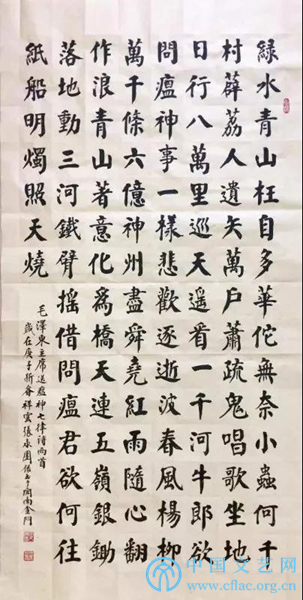 綠水青山枉自多華佗無奈小蟲何千
村薜荔人遺矢萬戶蕭疏鬼唱歌坐地
日行八萬里巡天遙看一千河牛郎欲
問瘟神事一樣悲歡逐逝波春風楊柳
萬千條六億神州盡舜堯紅雨隨心翻
作浪青山著意化爲橋天連五嶺銀鋤
落地動三河鐵臂搖借問瘟君欲何往
紙船明燭照天燒
毛澤東主席送瘟神七律詩兩首
歲在庚子新春祥雲張永團 閩南金門
中国文艺网
www.cflac.org.cn